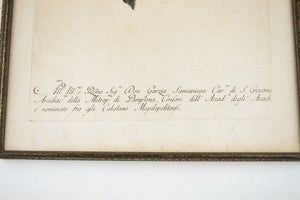 All' Ill.mo e Rmo Sig.r Don Garzia Samaniega Cav.r di S. Giacomo
Arcidiac. della Metrop. di Pamplona Censore dell' Accad. degli Arcad.
e nominato fra essi Calistano Megalopolitense.